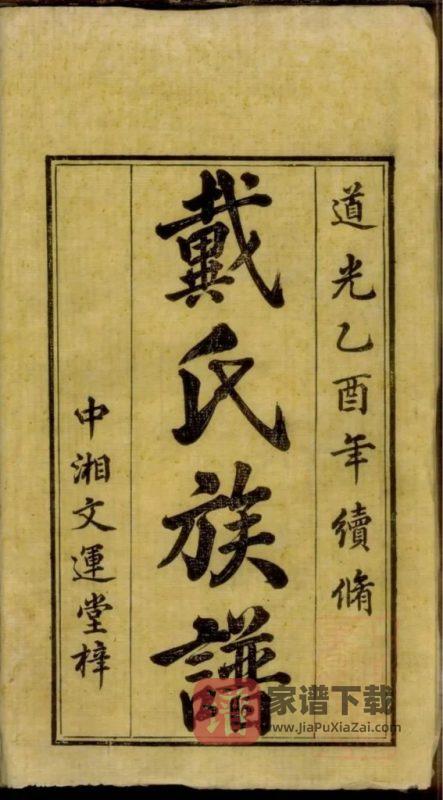 道光乙酉年續脩
戴氏族譜
中湘文運堂梓
家谱下载
www.JiaPuXiaZai.com